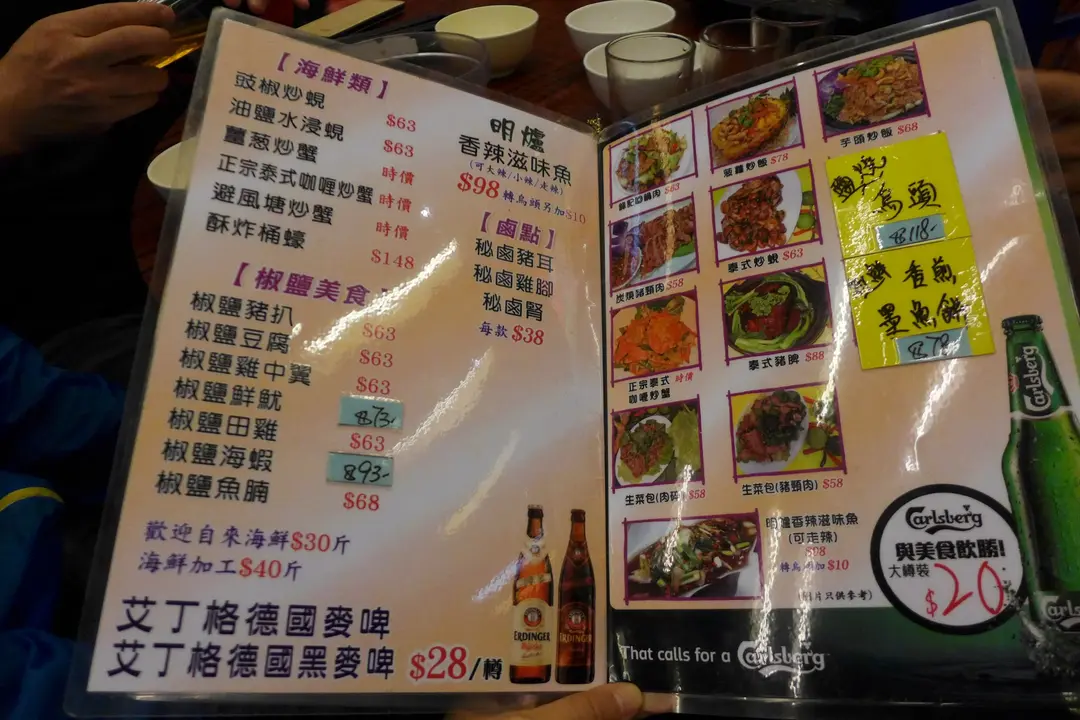 【海鮮類】
豉椒炒蜆 $63
油鹽水浸蜆 $63
薑葱炒蟹 時價
正宗泰式咖喱炒蟹 時價
避風塘炒蟹 時價
酥炸桶蠔 $148
【椒鹽美食】
椒鹽豬扒 $63
椒鹽豆腐 $63
椒鹽雞中翼 $63
椒鹽鮮魷 $73/-
椒鹽田雞 $63
椒鹽海蝦 $93-
椒鹽魚腩 $68
歡迎自來海鮮$30斤
海鮮加工$40斤
艾丁格德國麥啤
艾丁格德國黑麥啤 $28/樽
明爐
香辣滋味魚
(可大辣/小辣/走辣)
$98 轉烏頭另加$10
【鹵點】
秘鹵豬耳
秘鹵雞腳
秘鹵腎
每款 $38
ERDINGER
ERDINGER
$83
菠蘿炒飯 $78
芋頭炒飯 $68
炭燒豬頸肉 $58
泰式炒蜆 $63
正宗泰式 時價
咖喱炒蟹
泰式豬脾 $88
生菜包(肉碎) $58
生菜包(豬頸肉) $58
明爐香辣滋味魚
(可走辣)
$98
轉烏頭加 $10
(圖片只供參考)
烏頭
$118-
香煎
墨魚餅
$78-
Carlsberg
Carlsberg
與美食飲勝!
大樽裝
$20
That calls for a Carlsberg